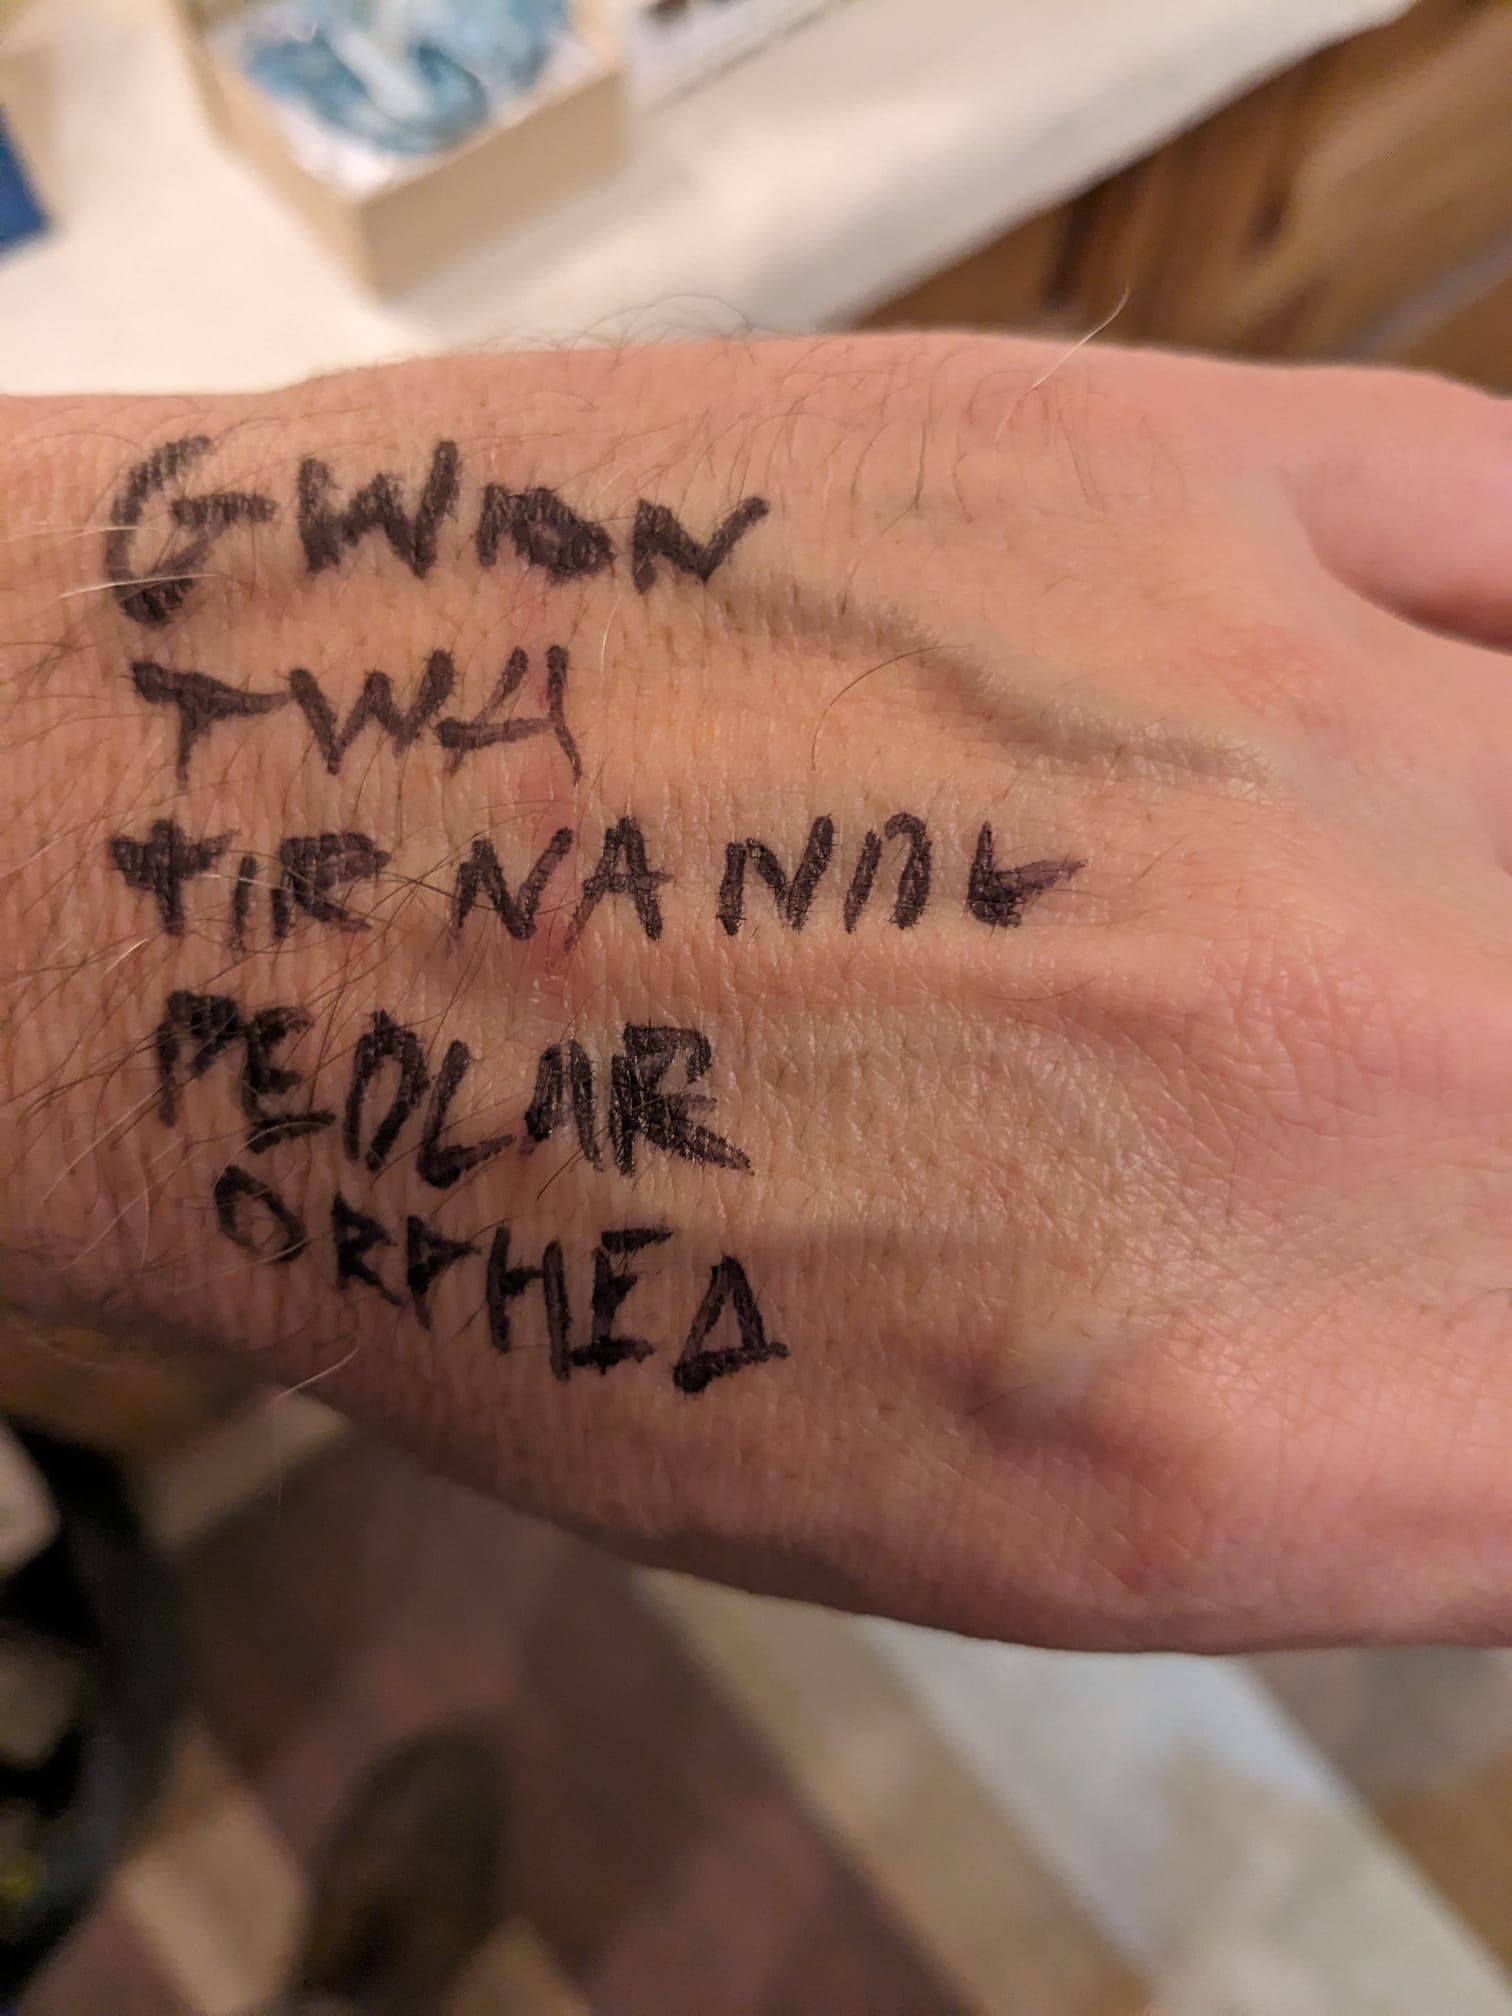 GWION
TWY
TIR NA NOL
PEDLAR
ORPHEA